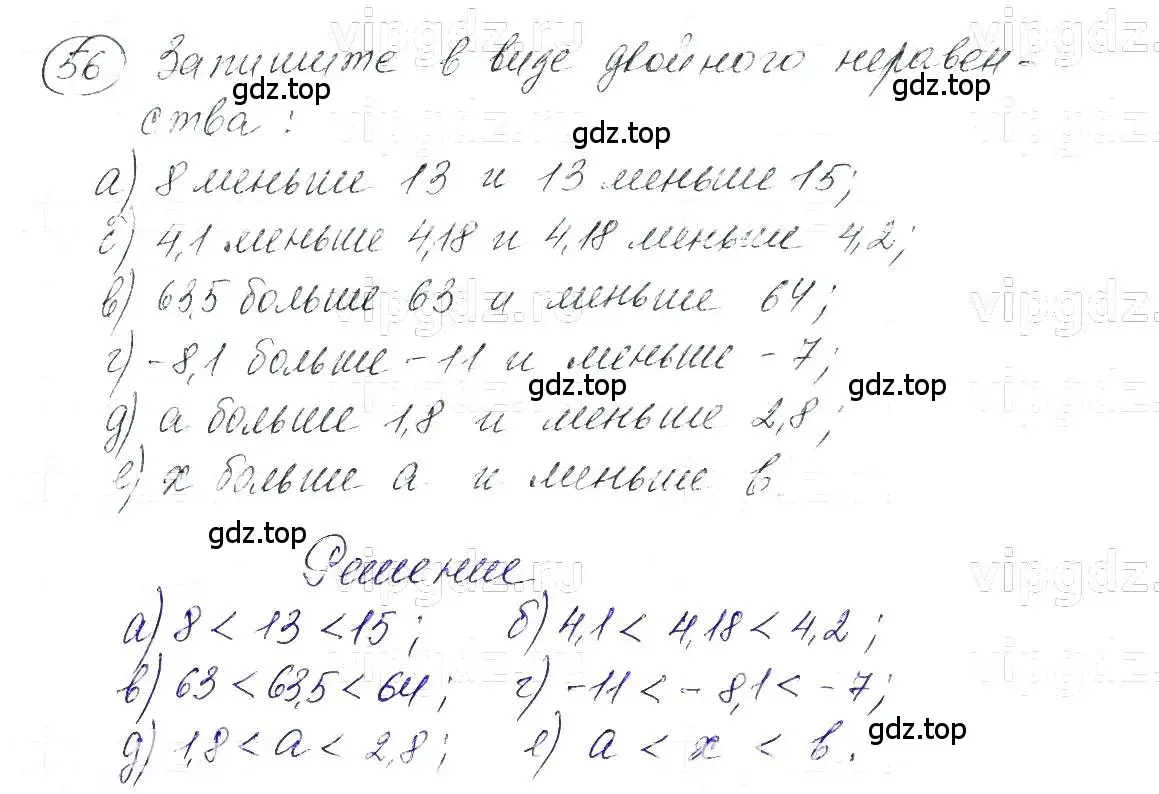 56 Запишите в виде двойного неравен-
ства:
а) 8 меньше 13 и 13 меньше 15;
б) 4,1 меньше 4,18 и 4,18 меньше 4,2;
в) 63,5 больше 63 и меньше 64;
г) -8,1 больше -11 и меньше -7;
д) а больше 1,8 и меньше 2,8;
е) х больше а и меньше в.
Решение
а) 8 < 13 < 15; б) 4,1 < 4,18 < 4,2;
в) 63 < 63,5 < 64; г) -11 < -8,1 < -7;
д) 1,8 < а < 2,8; е) а < х < в.
gdz.top
gdz.top
gdz.top
gdz.top
gdz.top
gdz.top
gdz.top
vipgdz.ru
vipgdz.
vipgdz.ru
vipgdz.
vipgdz.ru
vipgdz.